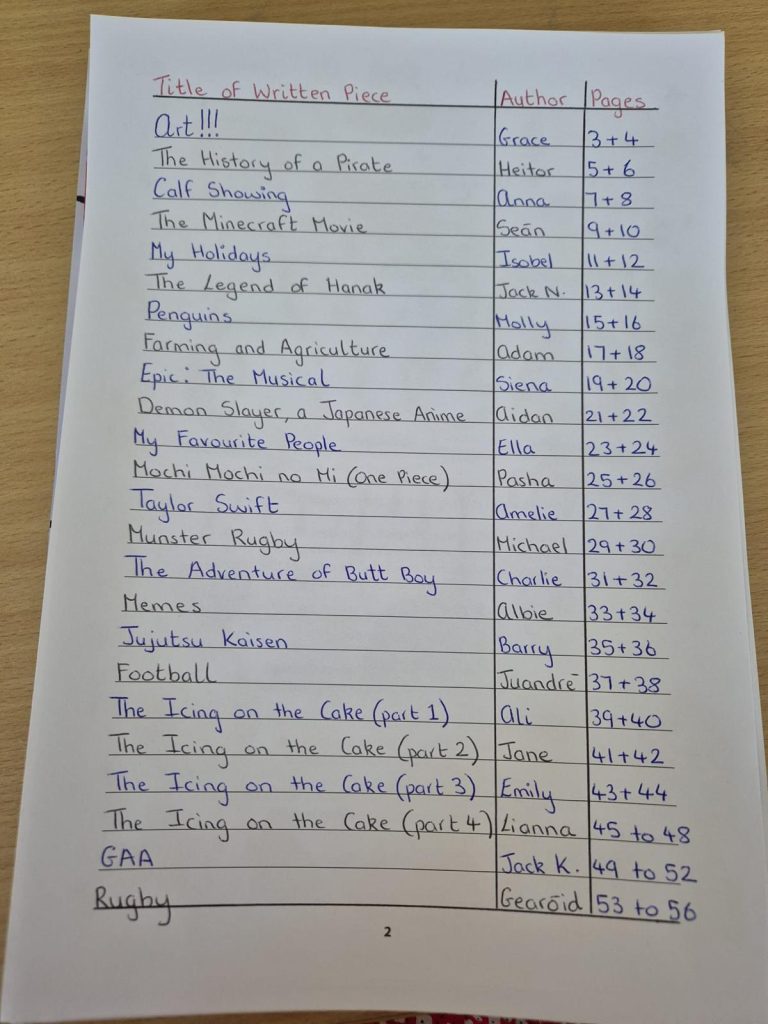 Title of Written Piece Author Pages
Art!!! Grace 3+4
The History of a Pirate Heitor 5+6
Calf Showing Anna 7+8
The Minecraft Movie Seán 9+10
My Holidays Isobel 11+12
The Legend of Hanak Jack N. 13+14
Penguins Molly 15+16
Farming and Agriculture Adam 17+18
Epic: The Musical Siena 19+20
Demon Slayer, a Japanese Anime Aidan 21+22
My Favourite People Ella 23+24
Mochi Mochi no Mi (One Piece) Pasha 25+26
Taylor Swift Amelie 27+28
Munster Rugby Michael 29+30
The Adventure of Butt Boy Charlie 31+32
Memes Albie 33+34
Jujutsu Kaisen Barry 35+36
Football Juandré 37+38
The Icing on the Cake (part 1) Ali 39+40
The Icing on the Cake (part 2) Jane 41+42
The Icing on the Cake (part 3) Emily 43+44
The Icing on the Cake (part 4) Lianna 45 to 48
GAA Jack K. 49 to 52
Rugby Gearóid 53 to 56
2